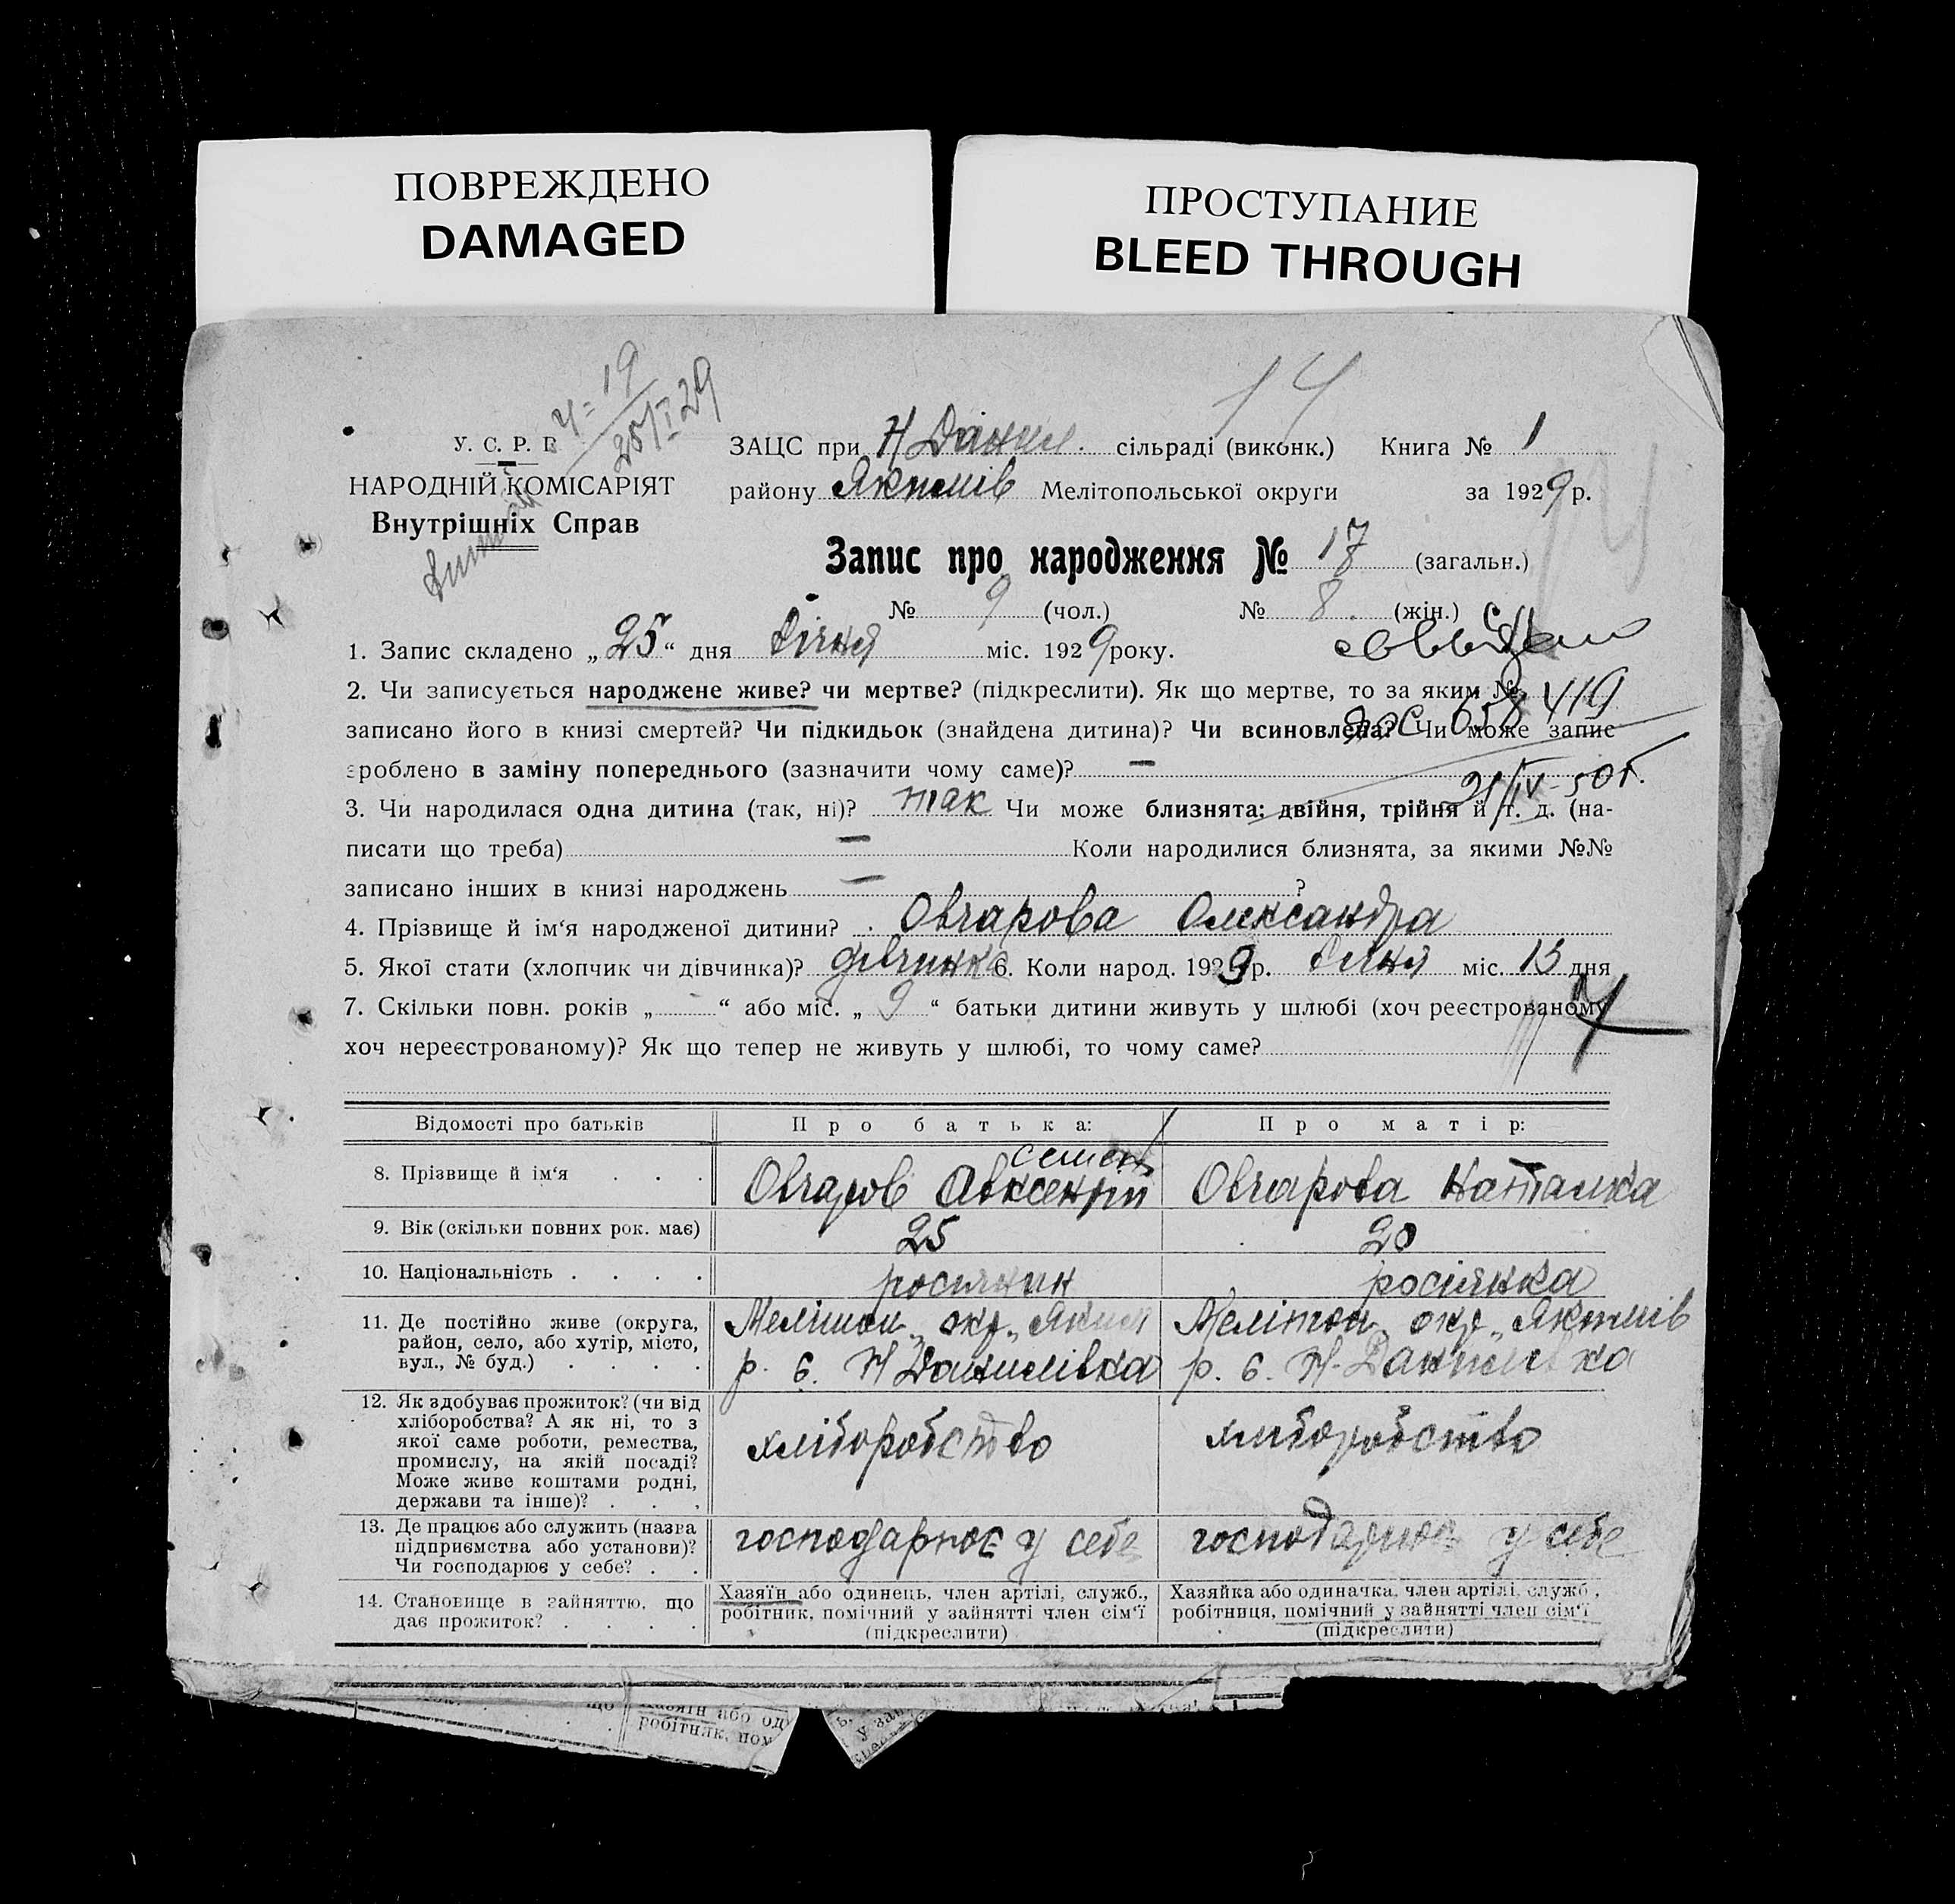 ПОВРЕЖДЕНО
DAMAGED
ПРОСТУПАНИЕ
BLEED THROUGH
14
Ч=19
25/I 29
У. С. Р. Р.
НАРОДНІЙ КОМІСАРІЯТ
Внутрішніх Справ
ЗАЦС при Н Данил. сільраді (виконк.) Книга № 1
району Якимів Мелітопольської округи за 1929 р.
Запис про народження № 17 (загальн.)
№ 9 (чол.) № 8. (жін.)
1. Запис складено „25“ дня Січня міс. 1929 року.
2. Чи записується народжене живе? чи мертве? (підкреслити). Як що мертве, то за яким №
записано його в книзі смертей? Чи підкидьок (знайдена дитина)? Чи всиновлена? Чи може запис
зроблено в заміну попереднього (зазначити чому саме)? —
419
21/IV-50г.
3. Чи народилася одна дитина (так, ні)? так Чи може близнята: двійня, трійня й т. д. (на-
писати що треба) — Коли народилися близнята, за якими №№
записано інших в книзі народжень — ?
4. Прізвище й ім‘я народженої дитини? Овчарова Олександра
5. Якої стати (хлопчик чи дівчинка)? дівчинка 6. Коли народ. 1929 р. Січня міс. 13 дня
7. Скільки повн. років „ “ або міс. „ 9 “ батьки дитини живуть у шлюбі (хоч реєстрованому
хоч нереєстрованому)? Як що тепер не живуть у шлюбі, то чому саме?
Відомості про батьків Про батька: Про матір:
Семен
8. Прізвище й ім‘я . . . Овчаров Авксентій Овчарова Наталка
9. Вік (скільки повних рок. має) 25 20
10. Національність . . . . росіянин росіянка
11. Де постійно живе (округа,
район, село, або хутір, місто,
вул., № буд.) . . . .
Мелітоп. окр., Яким
р. с. Н Данилівка
Мелітоп. окр., Якимів
р. с. Н-Данилівка
12. Як здобуває прожиток? (чи від
хліборобства? А як ні, то з
якої саме роботи, ремества,
промислу, на якій посаді?
Може живе коштами родні,
держави та інше)? . . .
хліборобство
хліборобство
13. Де працює або служить (назва
підприємства або установи)?
Чи господарює у себе? . .
господарює у себе
господарює у себе
14. Становище в зайняттю, що
дає прожиток? . . . .
Хазяїн або одинець, член артілі, служб.,
робітник, помічний у зайнятті член сім‘ї
(підкреслити)
Хазяйка або одиначка, член артілі, служб.,
робітниця, помічний у зайнятті член сім‘ї
(підкреслити)
що Хазяїн або од
робітник, пом
у зай